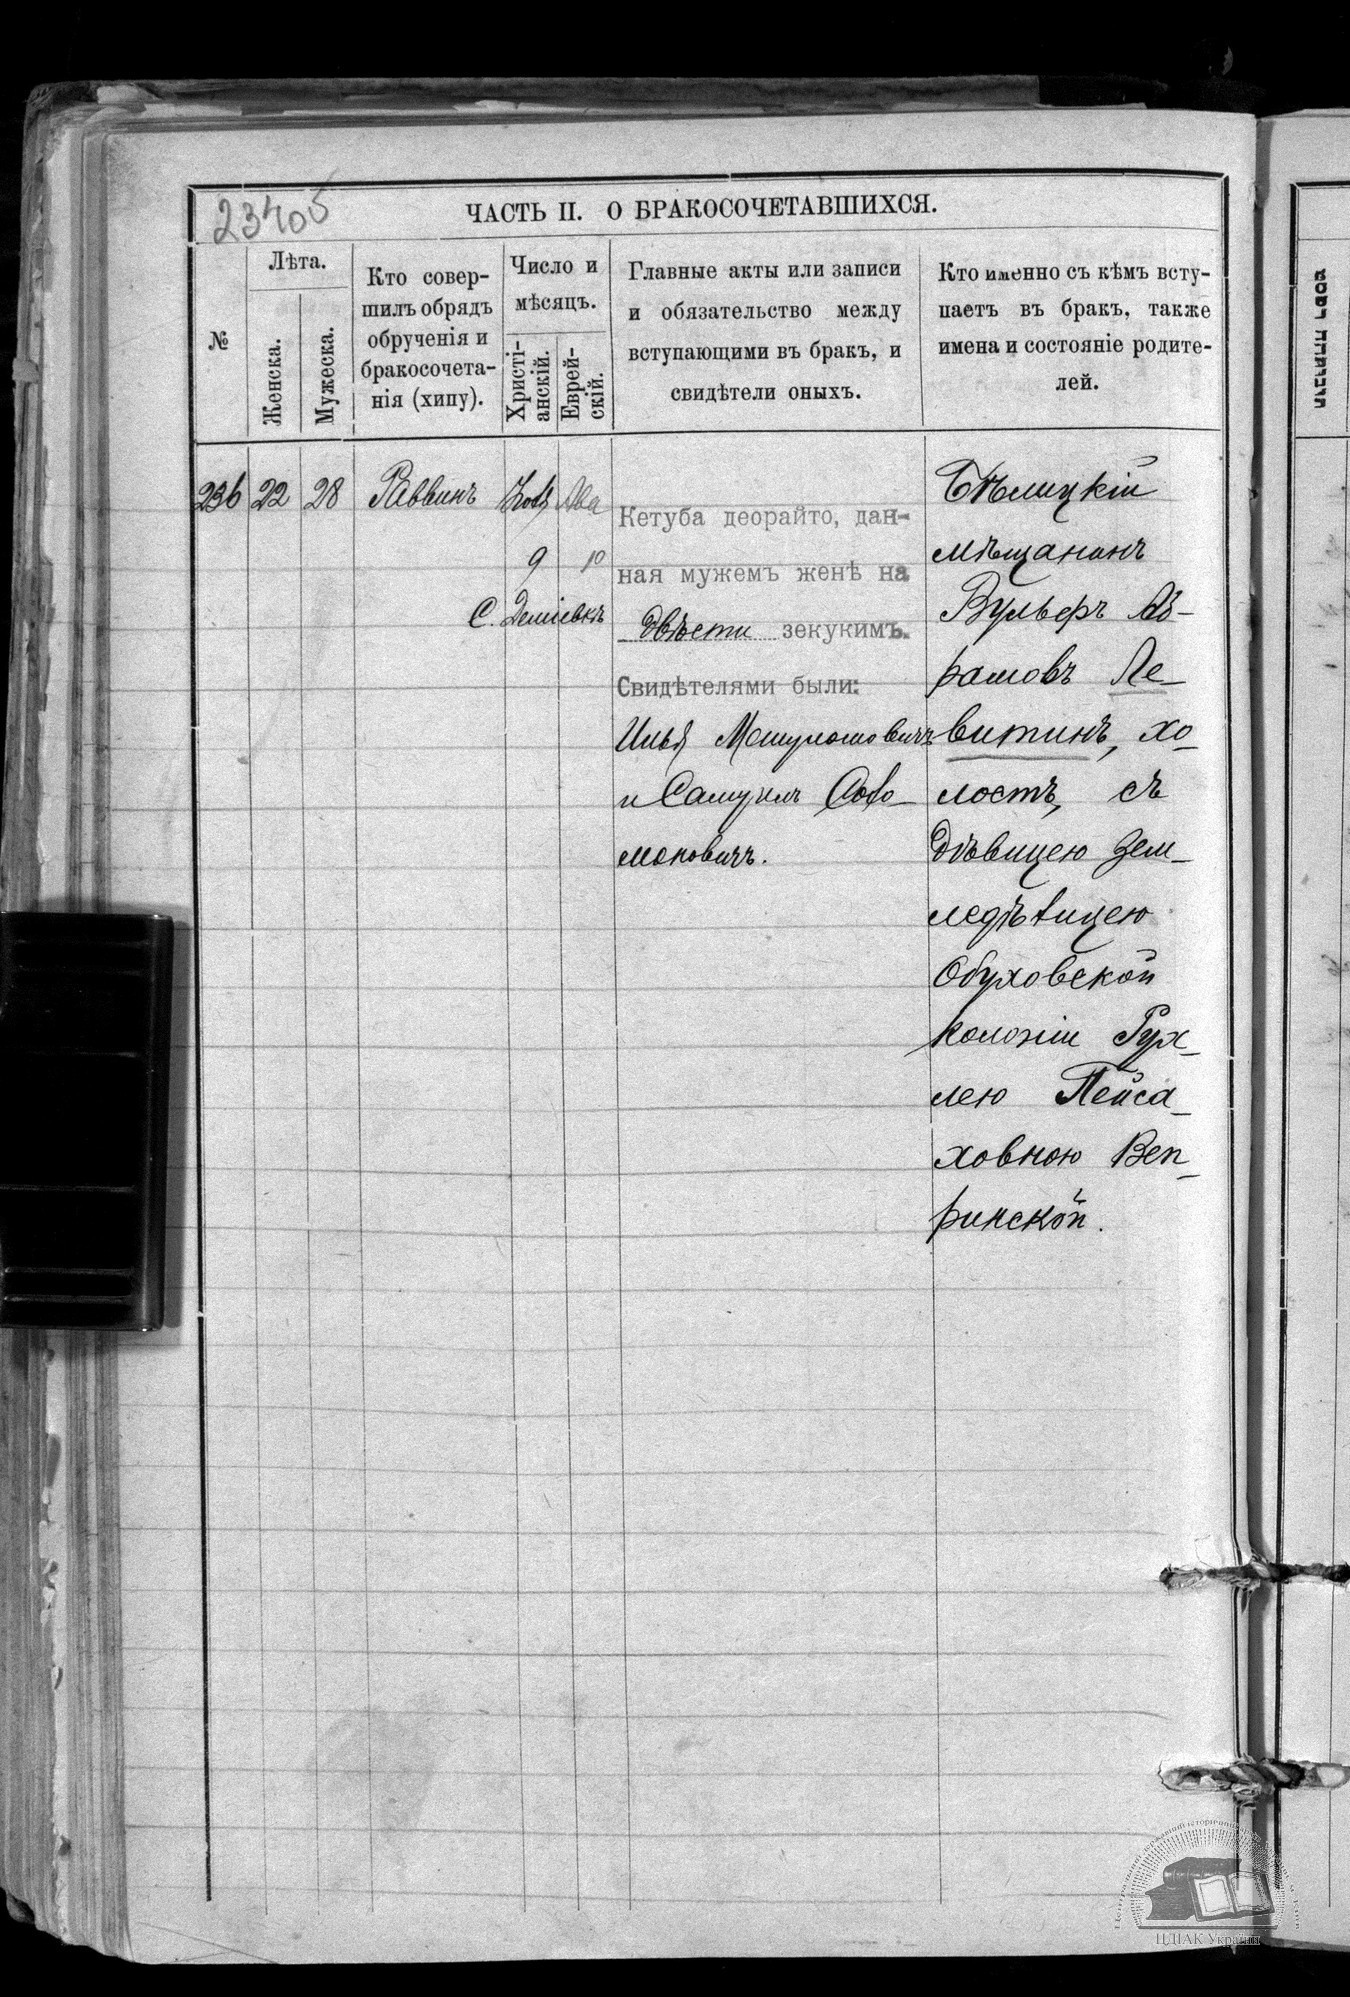 23405
ЧАСТЬ II. О БРАКОСОЧЕТАВШИХСЯ.
№
Лѣта.
Женска.
Мужеска.
Кто совер-
шилъ обрядъ
обрученія и
бракосочета-
нія (хипу).
Число и
мѣсяцъ.
Христі-
анскій.
Еврей-
скій.
Главные акты или записи
и обязательство между
вступающими въ бракъ, и
свидѣтели оныхъ.
Кто именно съ кѣмъ всту-
паетъ въ бракъ, также
имена и состояніе родите-
лей.
236 22 28 Раввинъ
9 10
С. Деміевкѣ
Кетуба деорайто, дан-
ная мужемъ женѣ на
двѣсти зекукимъ.
Свидѣтелями были:
Илья
и Самуилъ Соло-
моновичъ.
Бѣлицкій
мѣщанинъ
Вульфъ Аб-
рамовъ Ле-
витинъ, хо-
лостъ, съ
дѣвицею зем-
ледѣлицею
Обуховской
колоніи Рух-
лею Пейса-
ховною Веп-
ринской.
ЦДІАК України